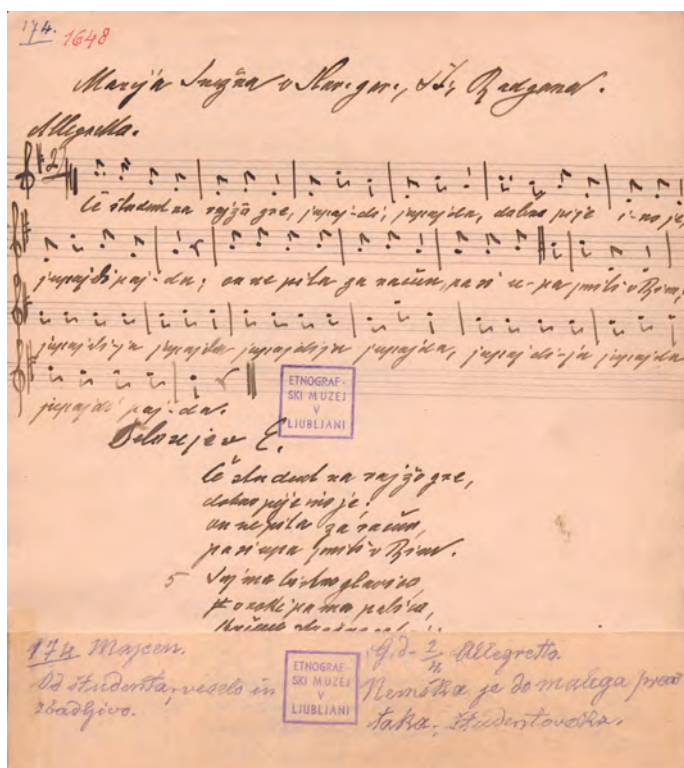 174. 1648
Marija Snežna v Slov. gor., Št., Radgona.
Allegretto.
Če študent na rajžo gre, jupaj-di, jupajda, dobro pije i-no je,
jupajdi paj-da; on ne pita za račun, pa si u-pa priti v Rim,
jupajdi-ja jupajda jupajdija jupajda, jupajdi-ja jupajda
jupajdi paj-da.
ETNOGRAF-
SKI MUZEJ
V
LJUBLJANI
Če študent na rajžo gre,
dobro pije ino je;
on ne pita za račun,
pa si upa priti v Rim.
5 Saj ma bistro glavico,
v roki pa ma palico,
174 Majcen.
Od študenta, veselo in
zbadljivo.
ETNOGRAF-
SKI MUZEJ
V
LJUBLJANI
G. d. 2/4 Allegretto.
Nemška je do malega prav
taka. Študentovska.